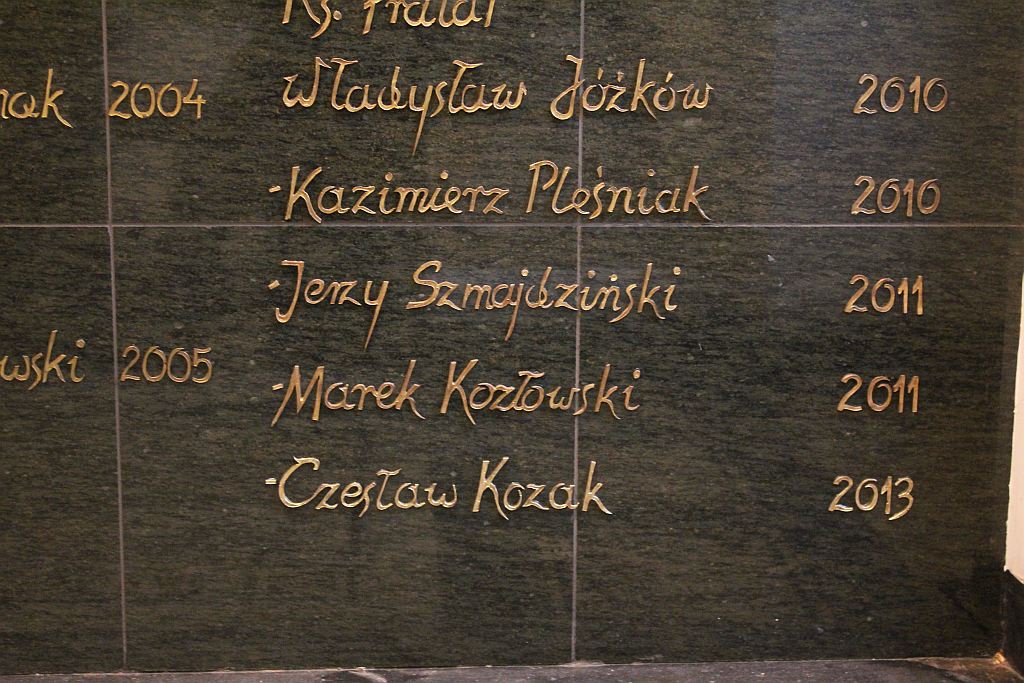 Ks. Prałat
2004 Władysław Jóżków 2010
-Kazimierz Pleśniak 2010
-Jerzy Szmajdziński 2011
wski 2005
-Marek Kozłowski 2011
-Czesław Kozak 2013